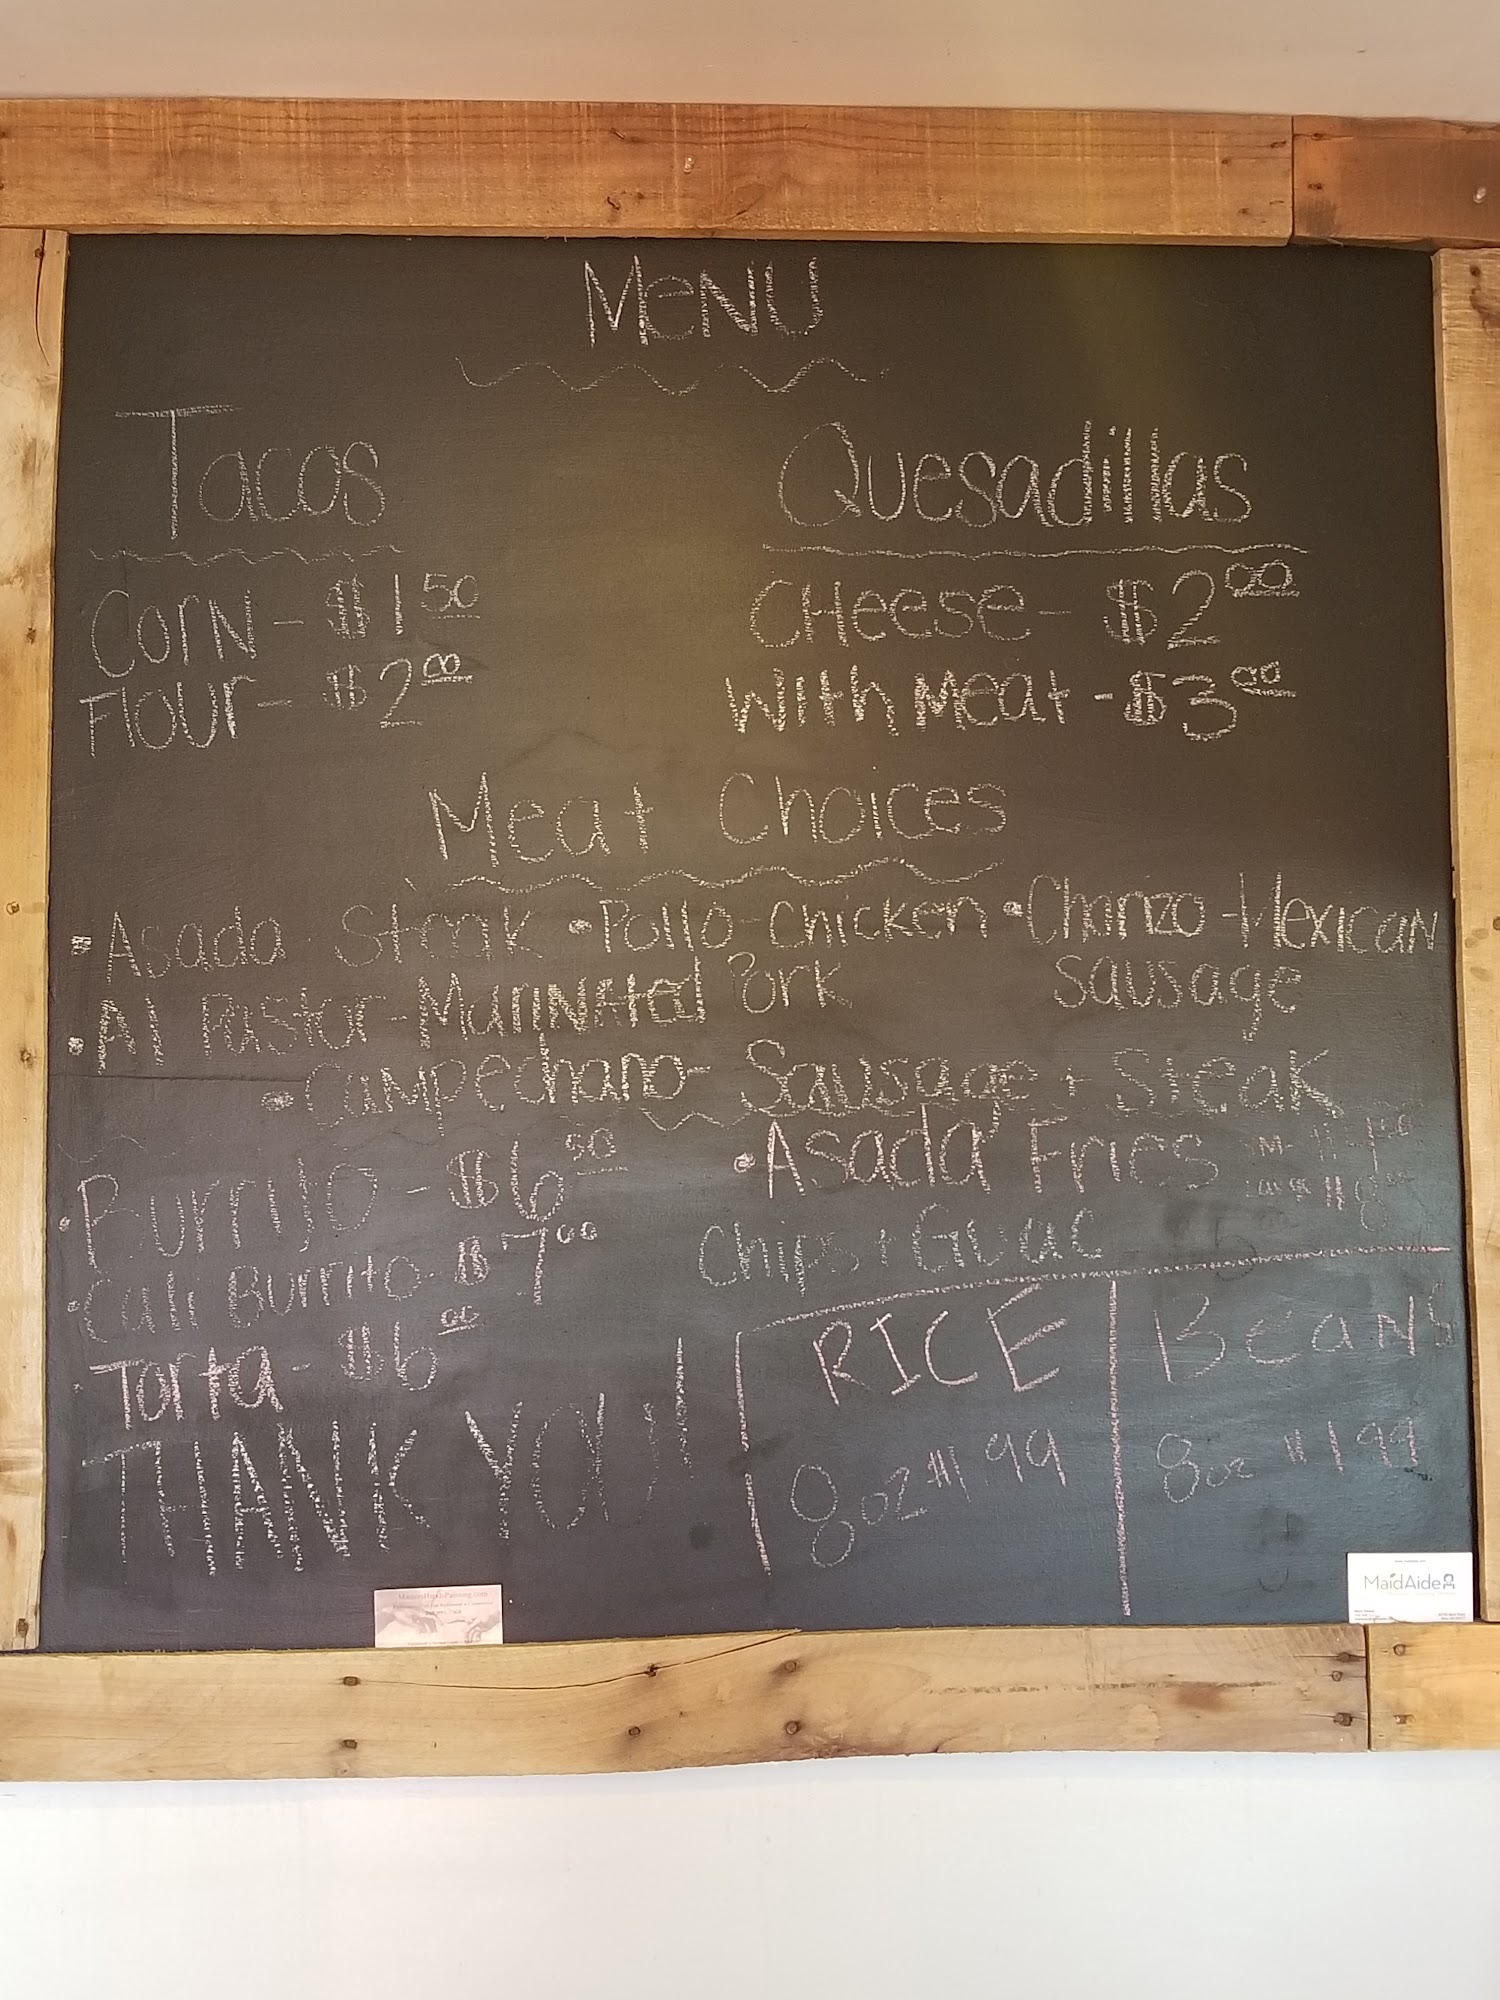 MeNU
Tacos
CORN - $1.50
FlOUR - $2.00
Quesadillas
CHeese - $2.00
With Meat - $3.00
Meat Choices
• Asada Steak • Pollo - Chicken • Chorizo - Mexican
Sausage
• Al Pastor - Marinated Pork
• Campechano - Sausage + Steak
• Burrito - $6.50
• Cali Burrito - $7.00
• Torta - $6.00
• Asada Fries
Chips + Guac
THANK YOU!
RICE
8oz $1.99
Beans
8oz $1.99
MaidAide